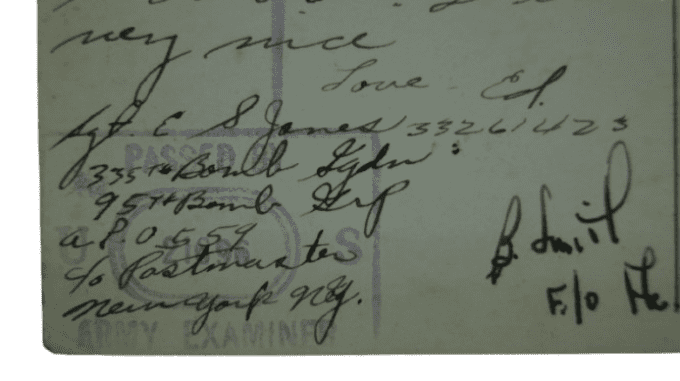 very nice
Love Ed.
Sgt. E S Jones 33261423
335th Bomb Sqdn.
95th Bomb Grp
PASSED BY
a P O 559
U S
c/o Postmaster
New York N.Y.
ARMY EXAMINER
B. Smith
F/O